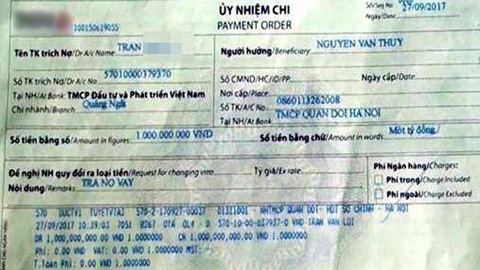 ỦY NHIỆM CHI
PAYMENT ORDER
Số/Seq No
Ngày/Date 27/09/2017
100150619055
Tên TK trích Nợ/Dr A/c Name TRAN
Người hưởng/Beneficiary NGUYEN VAN THUY
Số TK trích Nợ/Dr A/c No 57010000379370
Số CMND/HC/ID/PP. Ngày cấp/Date
Tại NH/At Bank: TMCP Đầu tư và Phát triển Việt Nam
Nơi cấp/Place
Chi nhánh/Branch Quảng Ngãi
Số TK/A/c No. 0860113262008
Tại NH/At Bank TMCP QUAN DOI HA NOI
Số tiền bằng số/Amount in figures 1 000 000 000 VND
Số tiền bằng chữ/Amount in words Một tỷ đồng
Đề nghị NH quy đổi ra loại tiền/Request for changing into
Tỷ giá/Ex rate
Phí Ngân hàng/Charges:
Phí trong/Charge Included
Phí ngoài/Charge Excluded
Nội dung/Remarks TRA NO VAY
570 DUCTV1 TUYETVTA3 570-2-170927-00037 01311001 - NHTMCP QUAN DOI- HOI SO CHINH - HA NOI
27/09/2017 10:39:03 7051 OTA OL4 D 570-10-00-037937-0 VND TRAN VAN LOI
DR 1,000,000,000.00 VND 1.0000 CR 1,000,000,000.00 VND 1.0000
Phi: 0.00 VND VAT: 0.00 VND 1.0000
T.Toan Phi: 0.00 VND 1.0000